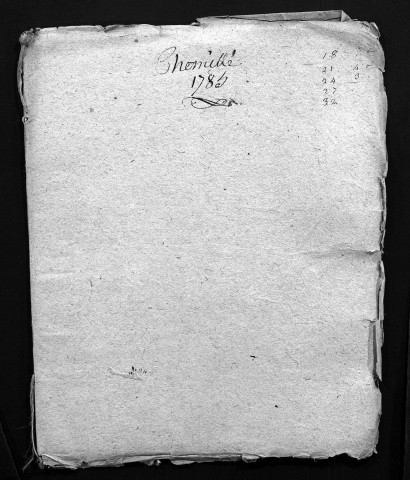 Chemillé
178
18
21
24
27
32